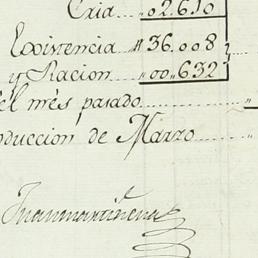 Cria....„02.610
Existencia „36.008
y Racion....„00„632
el més pasado............„
oduccion de Marzo........„
Juanmartinena